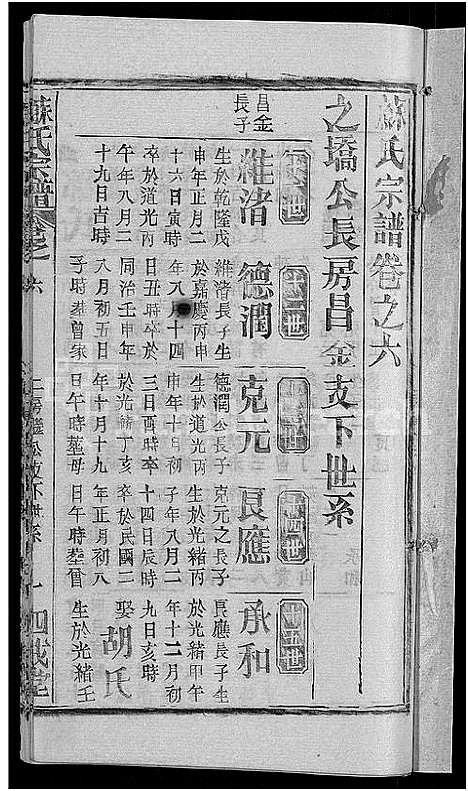 蘇氏宗譜卷之六
之墧公長房昌金支下世系
昌金
長子
維渚
生於乾隆戊
申年正月二
十六日寅時
卒於道光丙
午年八月二
十九日吉時
德潤
維渚長子生
於嘉慶丙申
年八月十四
日丑時卒於
同治壬申年
八月初五日
子時塟曾家
克元
德潤公長子
生於道光丙
申年十月初
三日酉時卒
於光緒丁亥
年十月十九
日午時塟母
良應
克元之長子
生於光緒丙
子年八月二
十四日辰時
卒於民國二
年正月初八
日午時塟曾
十五世
承和
良應長子生
於光緒甲午
年十二月初
九日亥時
娶胡氏
生於光緒壬
蘇氏宗譜
卷之六